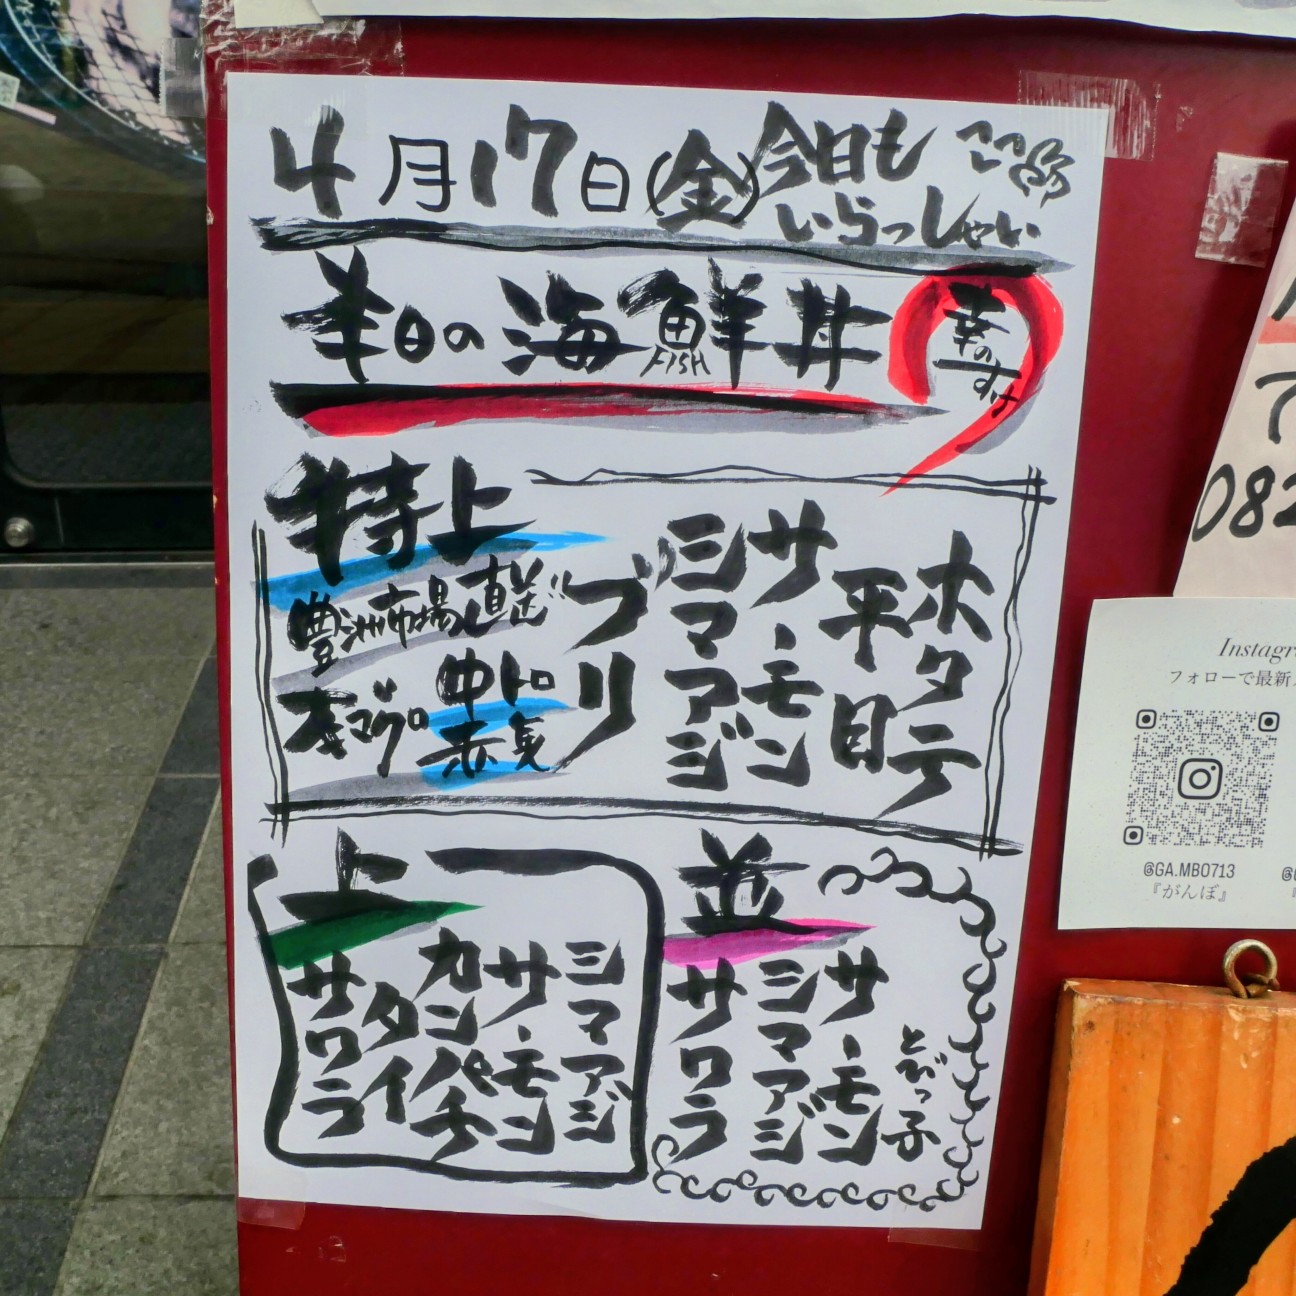 4月17日(金)今日も
いらっしゃい
本日の海鮮丼
FISH
幸のすけ
特上
豊洲市場直送
本マグロ
中トロ
赤身
ホタテ
平目
サーモン
シマアジ
ブリ
上
シマアジ
サーモン
カンパチ
タイ
サワラ
並
とびっ子
サーモン
シマアジ
サワラ
082
フォローで最新
@GA.MB0713
『がんぼ』